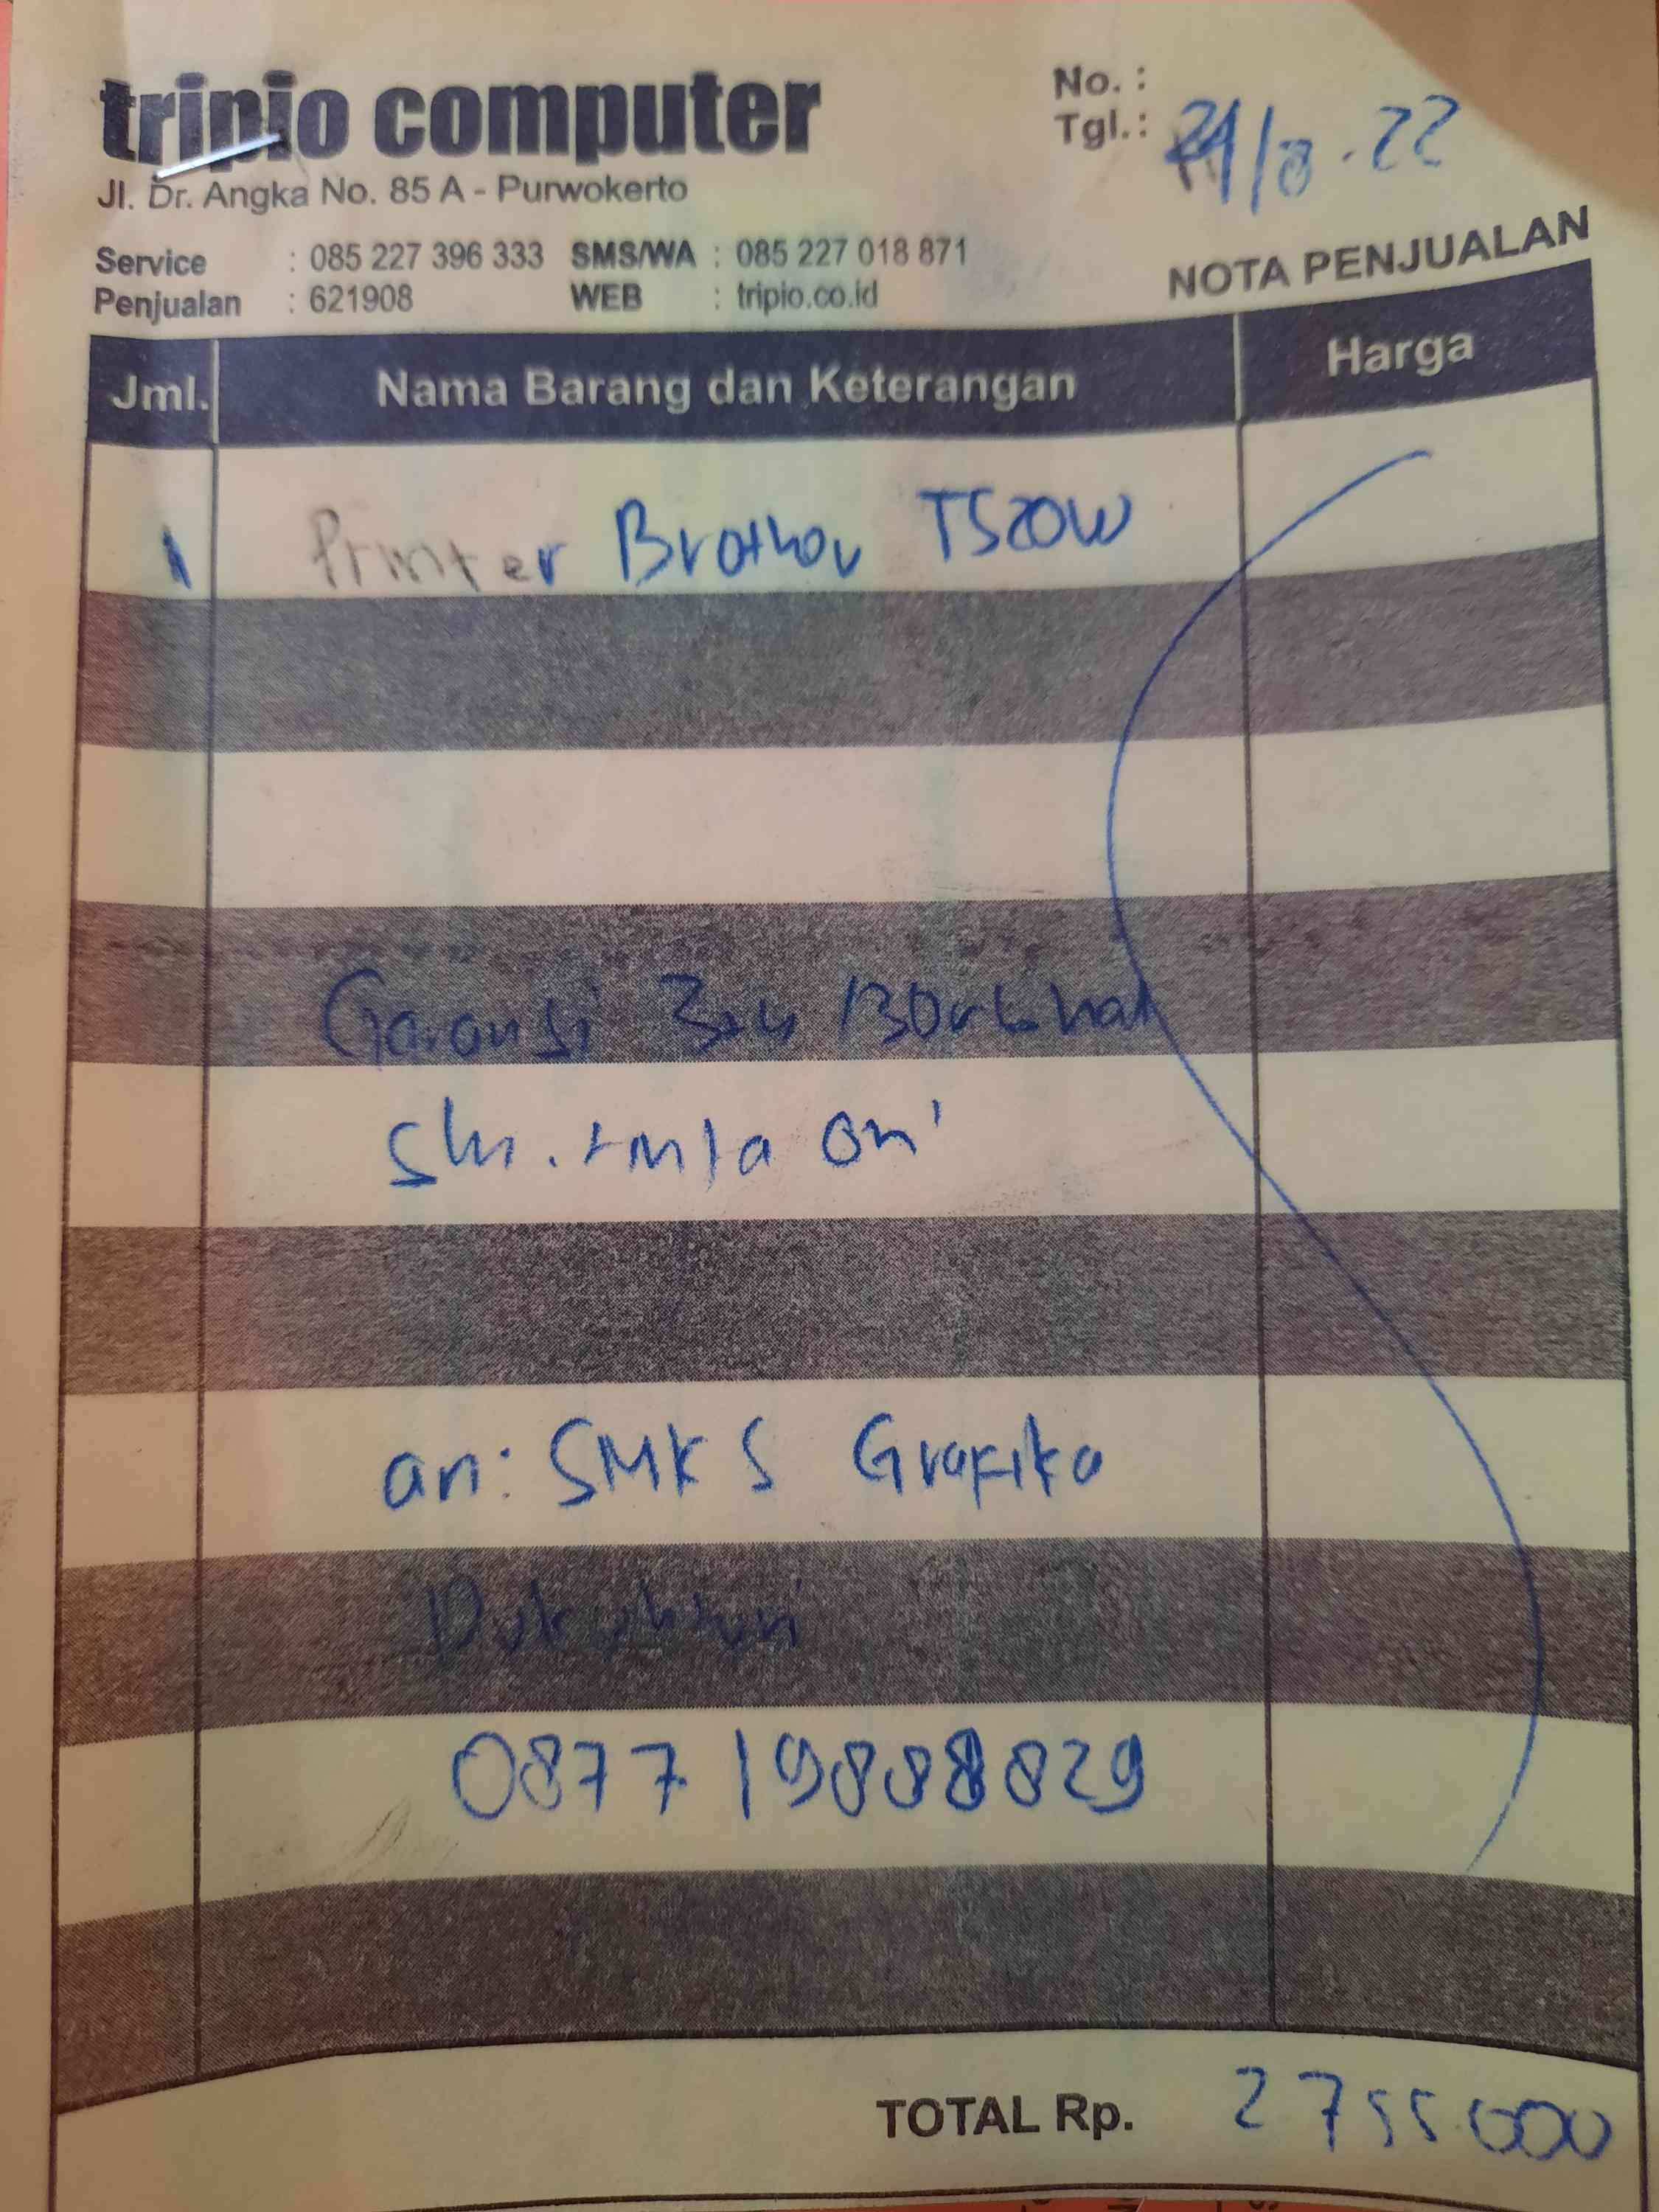 tripio computer
Jl. Dr. Angka No. 85 A - Purwokerto
No. :
Tgl.: 24/8.22
Service : 085 227 396 333 SMS/WA : 085 227 018 871
Penjualan : 621908 WEB : tripio.co.id
NOTA PENJUALAN
Jml. Nama Barang dan Keterangan Harga
1 Printer Brother T520W
Garansi
tinta ori
an: SMK S Grafika
087719888829
TOTAL Rp. 2755000